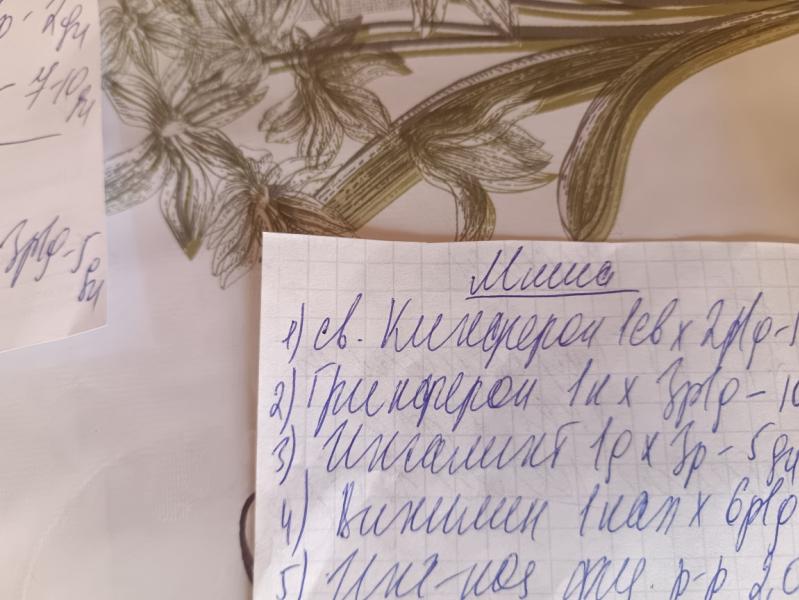 р - 2дн
- 7-10 дн
3р/д - 5 дн
Миша
1) св. Кипферон 1св х 2р/д - 
2) Гриппферон 1к х 3р/д - 10
3) Ингалипт 1д х 3р - 5дн
4) 1кап х 6р/д
5) Инг-ия физ. р-р 2,0